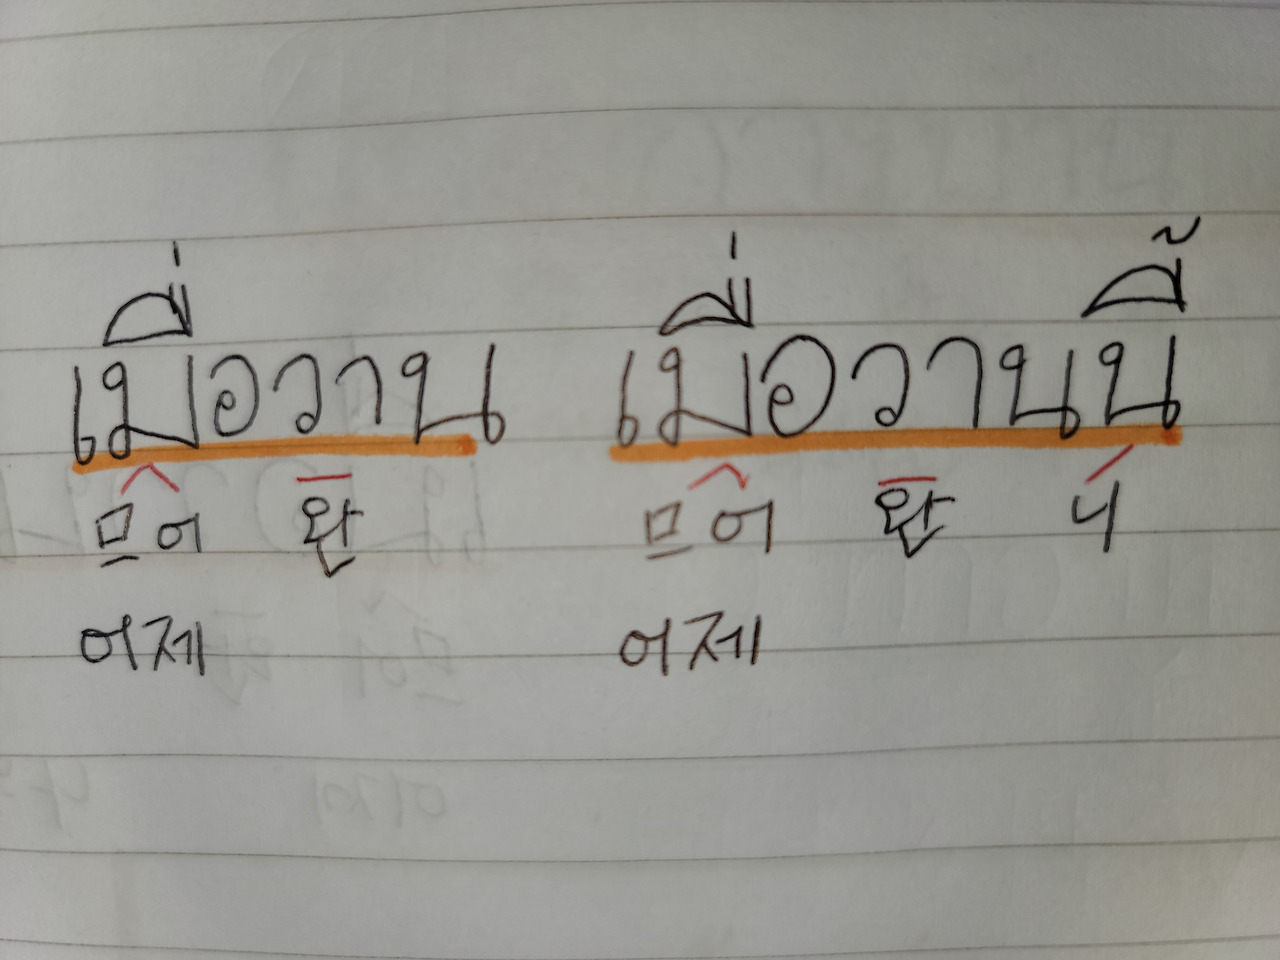 เมื่อวาน เมื่อวานนี้
므어 완 므어 완 니
어제 어제